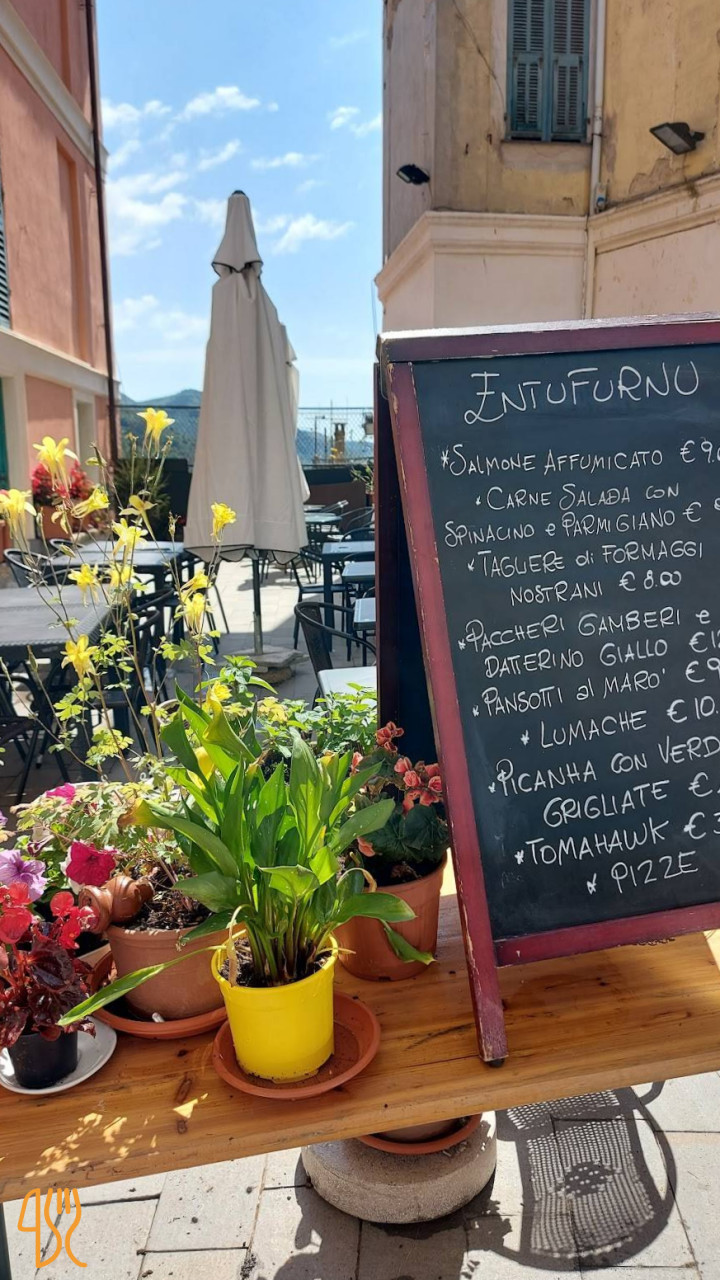 ENTUFURNU
*SALMONE AFFUMICATO €9.
*CARNE SALADA CON
SPINACINO e PARMIGIANO €
*TAGLIERE di FORMAGGI
NOSTRANI €8.00
*PACCHERI GAMBERI e
DATTERINO GIALLO €1
*PANSOTTI al MARO' €9
*LUMACHE €10.
*PICANHA CON VERD
GRIGLIATE €
*TOMAHAWK €
*PIZZE